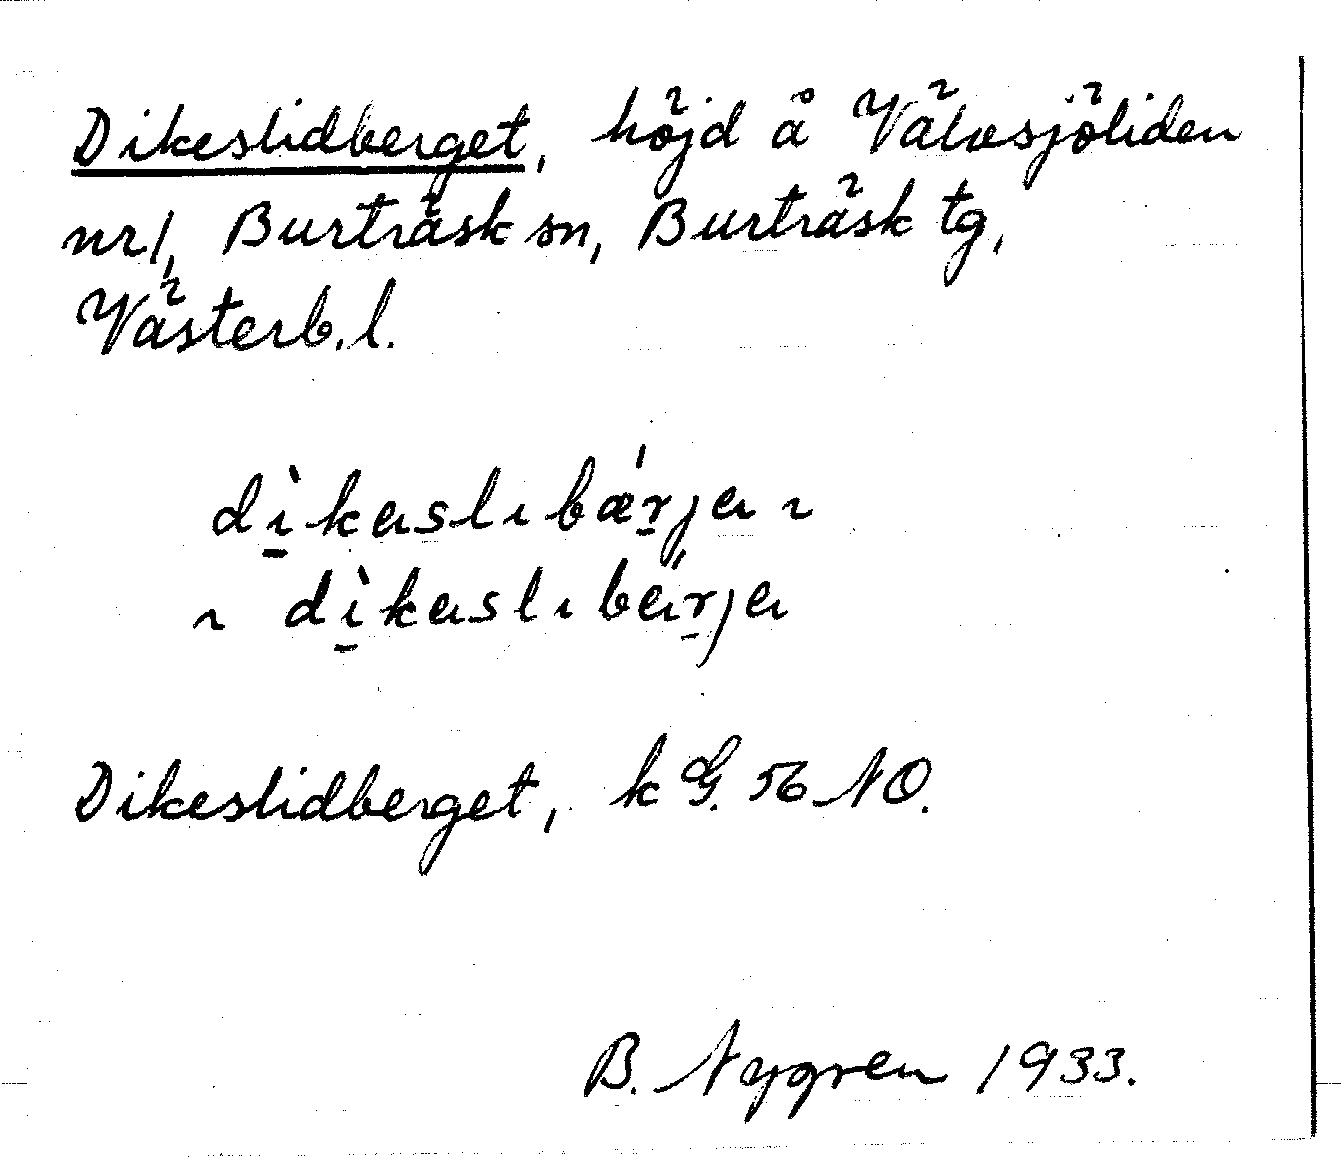 Dikeslidberget, höjd å Välvsjöliden
nr 1, Burträsk sn, Burträsk tg,
Västerb. l.
dìkɐslıbǽrjɐ ~
~ dìkɐslıbɐ́rjɐ
Dikeslidberget, k G. 56 NO.
B. Nygren 1933.